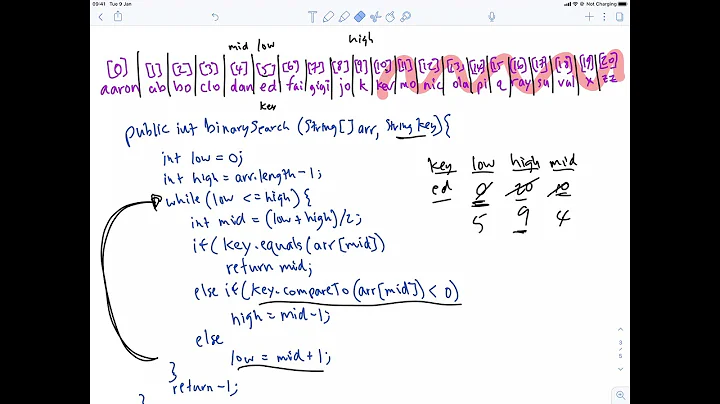 09:41 Tue 9 Jan
Not Charging
mid low high
[0] [1] [2] [3] [4] [5] [6] [7] [8] [9] [10] [11] [12] [13] [14] [15] [16] [17] [18] [19] [20]
aaron ab bo clo dan ed fai gigi jo k kev mo nic ola pi q ray su val x zz
key
public int binarySearch (String[] arr, String key){
int low = 0;
int high = arr.length-1;
while (low <= high) {
int mid = (low + high)/2;
if( key.equals(arr[mid])
return mid;
else if( key.compareTo(arr[mid]) < 0)
high = mid-1;
else
low = mid + 1;
}
return -1;
}
key low high mid
ed 0 20 10
5 9 4
3
/
5